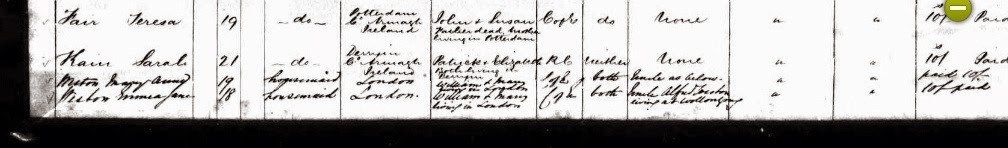 Farr Teresa 19 — do — Potterdam Co Armagh Ireland John & Susan Father dead, Mother living in Potterdam C of E do None " " 10/- Paid
Kain Sarah 21 — do — Co Armagh Ireland Patrick & Elizabeth Both living in RC Neither None " " 10/- Paid
Weston Mary Anne 19 housemaid London William & Mary living in London C of E both Uncle as below " " paid 10/-
Weston Emma Jane 18 housemaid London. William & Mary living in London C of E both Uncle Alfred Weston living at Wollongong " " 10/- paid